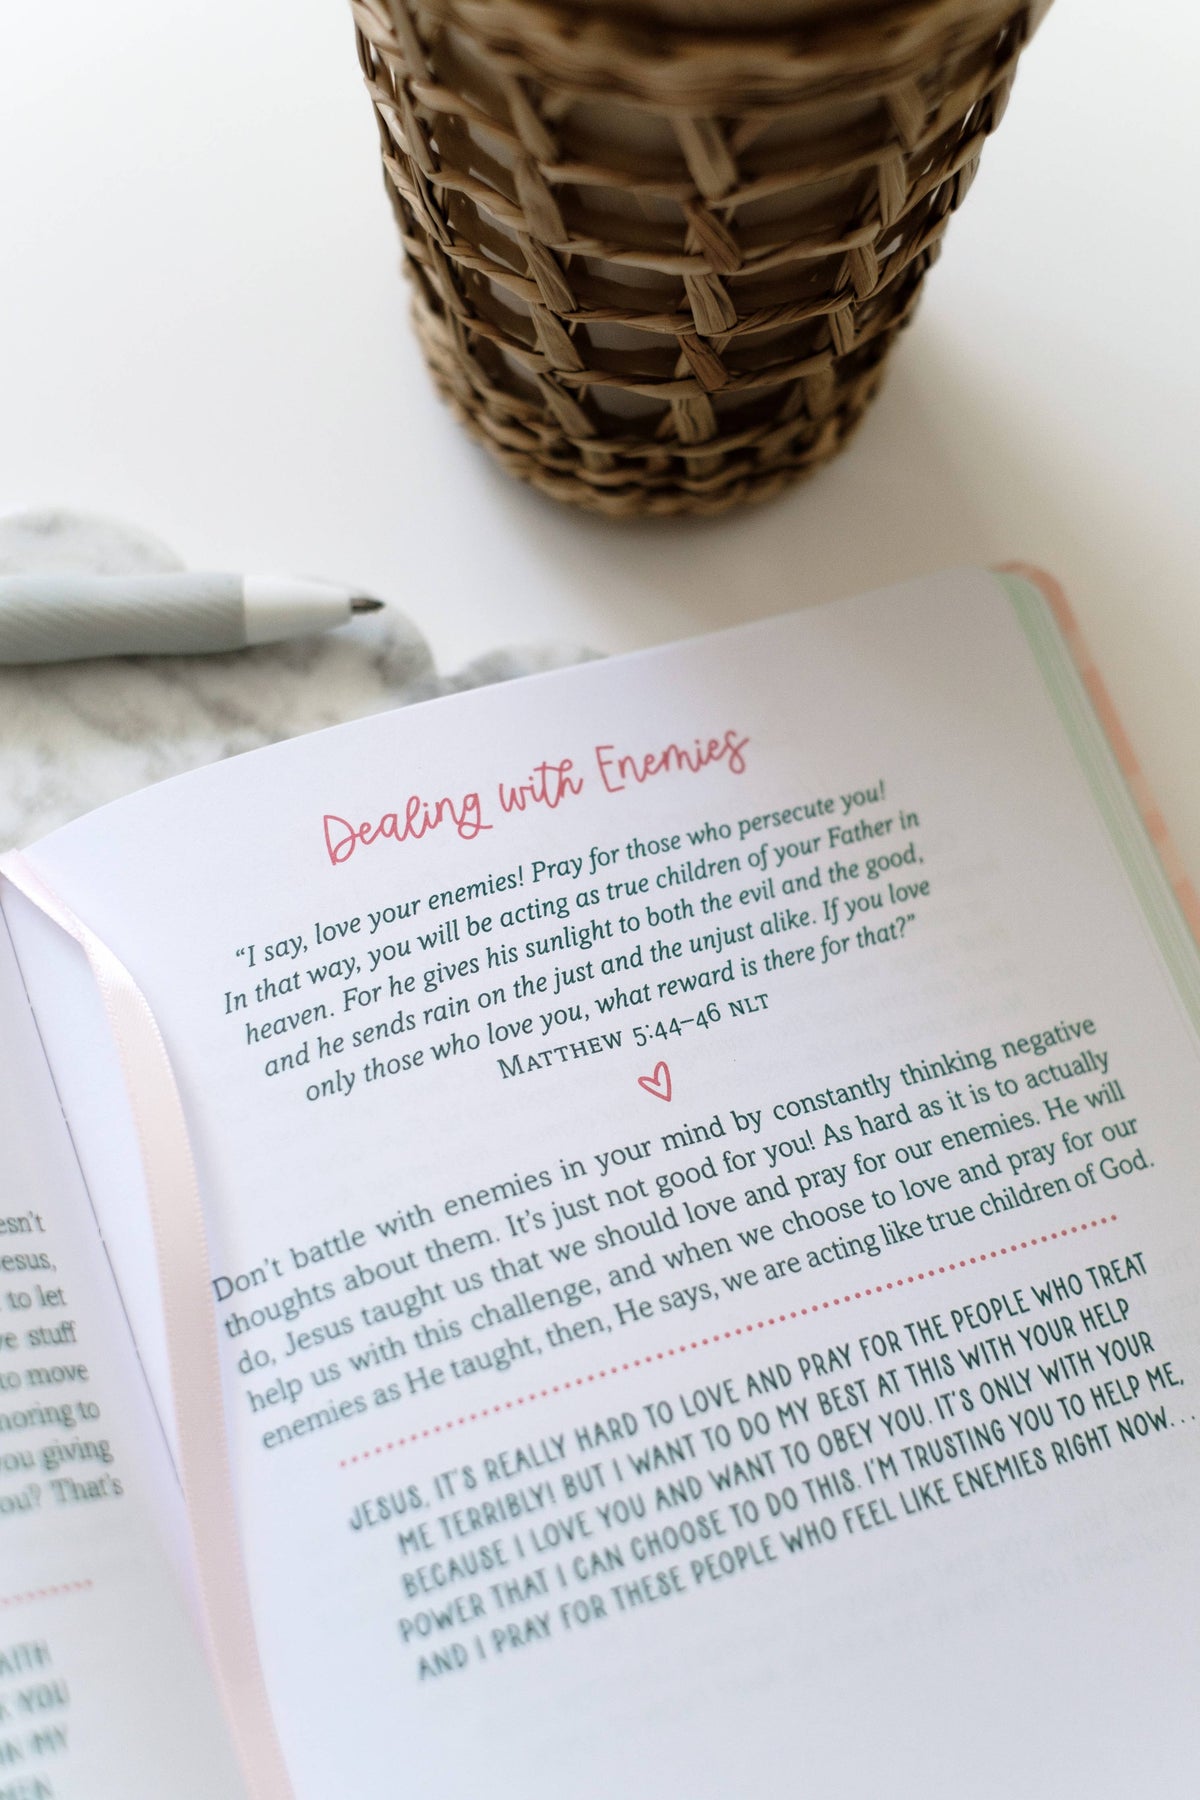 esn't
esus,
to let
ve stuff
to move
noring to
you giving
ou? That's
AITH
YOU
MY
Dealing with Enemies
“I say, love your enemies! Pray for those who persecute you!
In that way, you will be acting as true children of your Father in
heaven. For he gives his sunlight to both the evil and the good,
and he sends rain on the just and the unjust alike. If you love
only those who love you, what reward is there for that?”
MATTHEW 5:44–46 NLT
Don't battle with enemies in your mind by constantly thinking negative
thoughts about them. It's just not good for you! As hard as it is to actually
do, Jesus taught us that we should love and pray for our enemies. He will
help us with this challenge, and when we choose to love and pray for our
enemies as He taught, then, He says, we are acting like true children of God.
JESUS, IT'S REALLY HARD TO LOVE AND PRAY FOR THE PEOPLE WHO TREAT
ME TERRIBLY! BUT I WANT TO DO MY BEST AT THIS WITH YOUR HELP
BECAUSE I LOVE YOU AND WANT TO OBEY YOU. IT'S ONLY WITH YOUR
POWER THAT I CAN CHOOSE TO DO THIS. I'M TRUSTING YOU TO HELP ME,
AND I PRAY FOR THESE PEOPLE WHO FEEL LIKE ENEMIES RIGHT NOW...